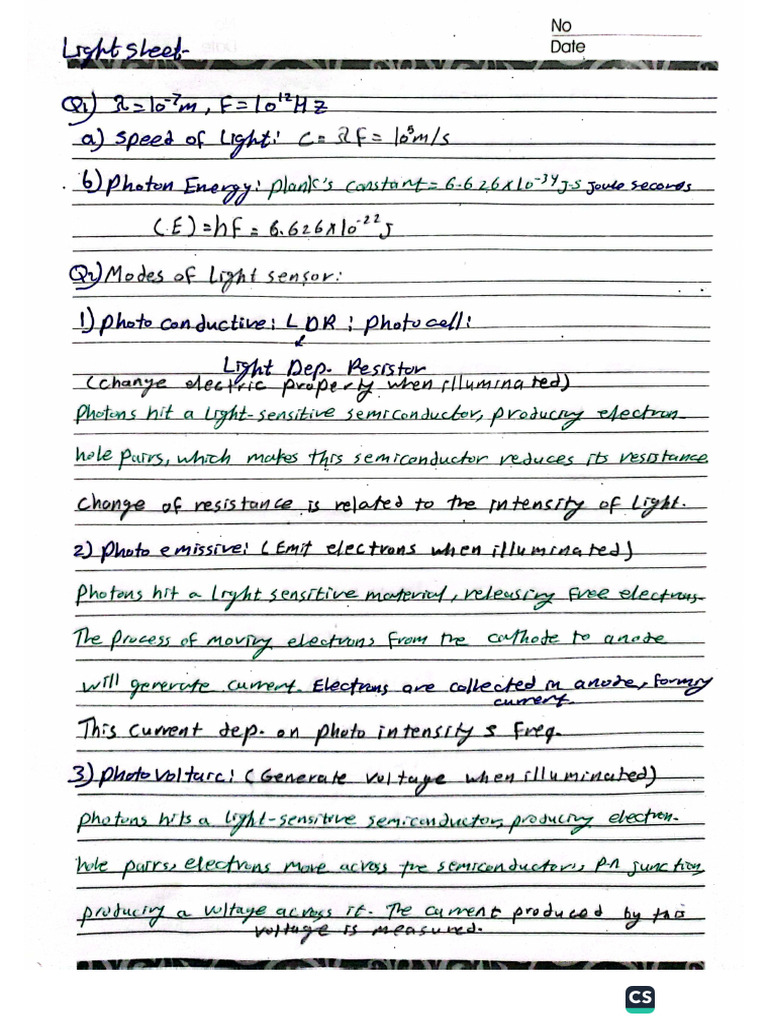 No
Light sheet-
Date
Q1) λ=10⁻⁷m, F=10¹²Hz
a) Speed of Light: C=λF=10⁵m/s
b) Photon Energy: plank's constant=6.626x10⁻³⁴J-s joule seconds
(E)=hF=6.626x10⁻²²J
Q2) Modes of Light sensor:
1) Photo conductive: LDR: photocell:
Light Dep. Resistor
(change electric property when illuminated)
Photons hit a light-sensitive semiconductor, producing electron
hole pairs, which makes this semiconductor reduces its resistance
Change of resistance is related to the intensity of Light.
2) photo emissive: (Emit electrons when illuminated)
Photons hit a light sensitive material, releasing free electrons.
The process of moving electrons from the cathode to anode
will generate current. Electrons are collected in anode, forming
current.
This current dep. on photo intensity & freq.
3) photo voltaic: (Generate voltage when illuminated)
photons hits a light-sensitive semiconductor, producing electron-
hole pairs, electrons move across the semiconductor,s P-n junction,
producing a voltage across it. The current produced by this
voltage is measured.
CS